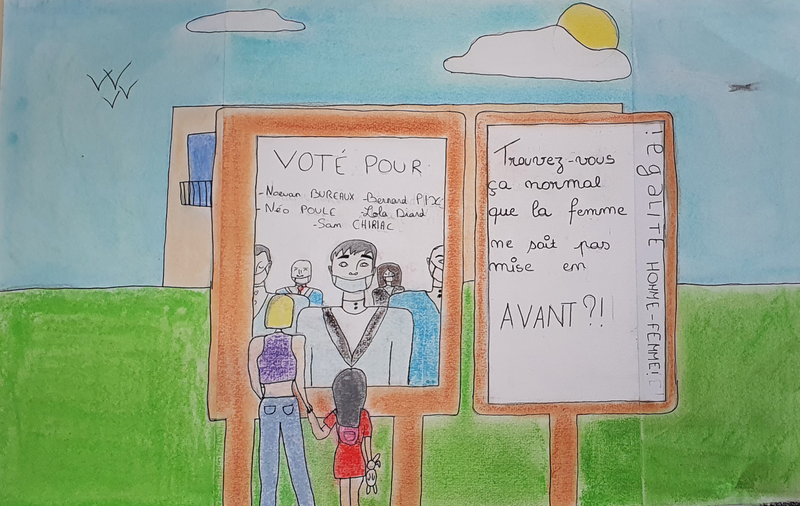 VOTÉ POUR
- Noewan BUREAUX - Bernard PIX
- Néo POULE - Lola Diard
- Sam CHIRIAC
Trouvez-vous
ça normal
que la femme
ne soit pas
mise en
AVANT?!
!égalité HOMME-FEMME!